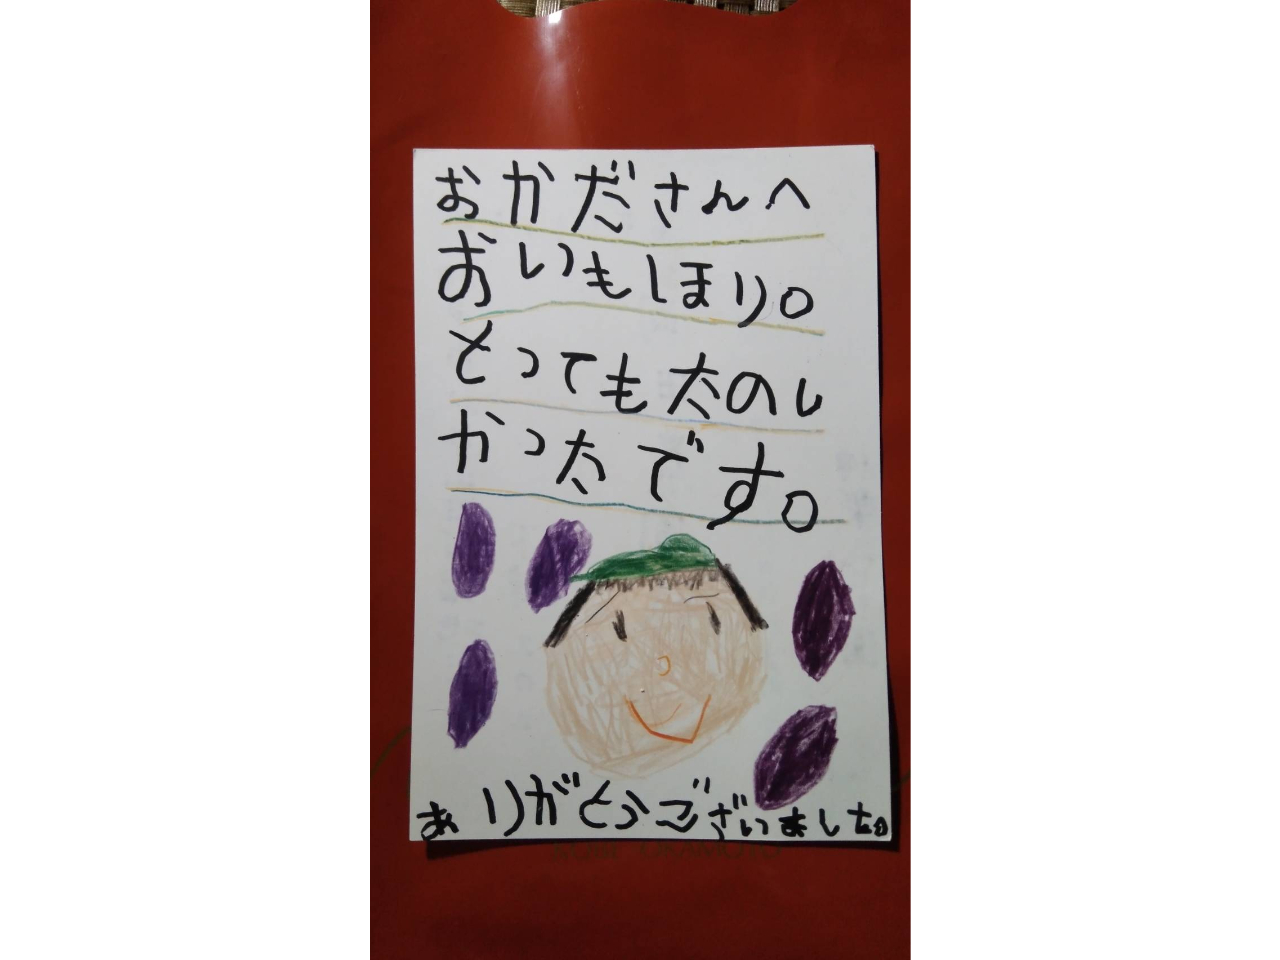 おかださんへ
おいもほり。
とっても太のし
かったです。
ありがとうございました。